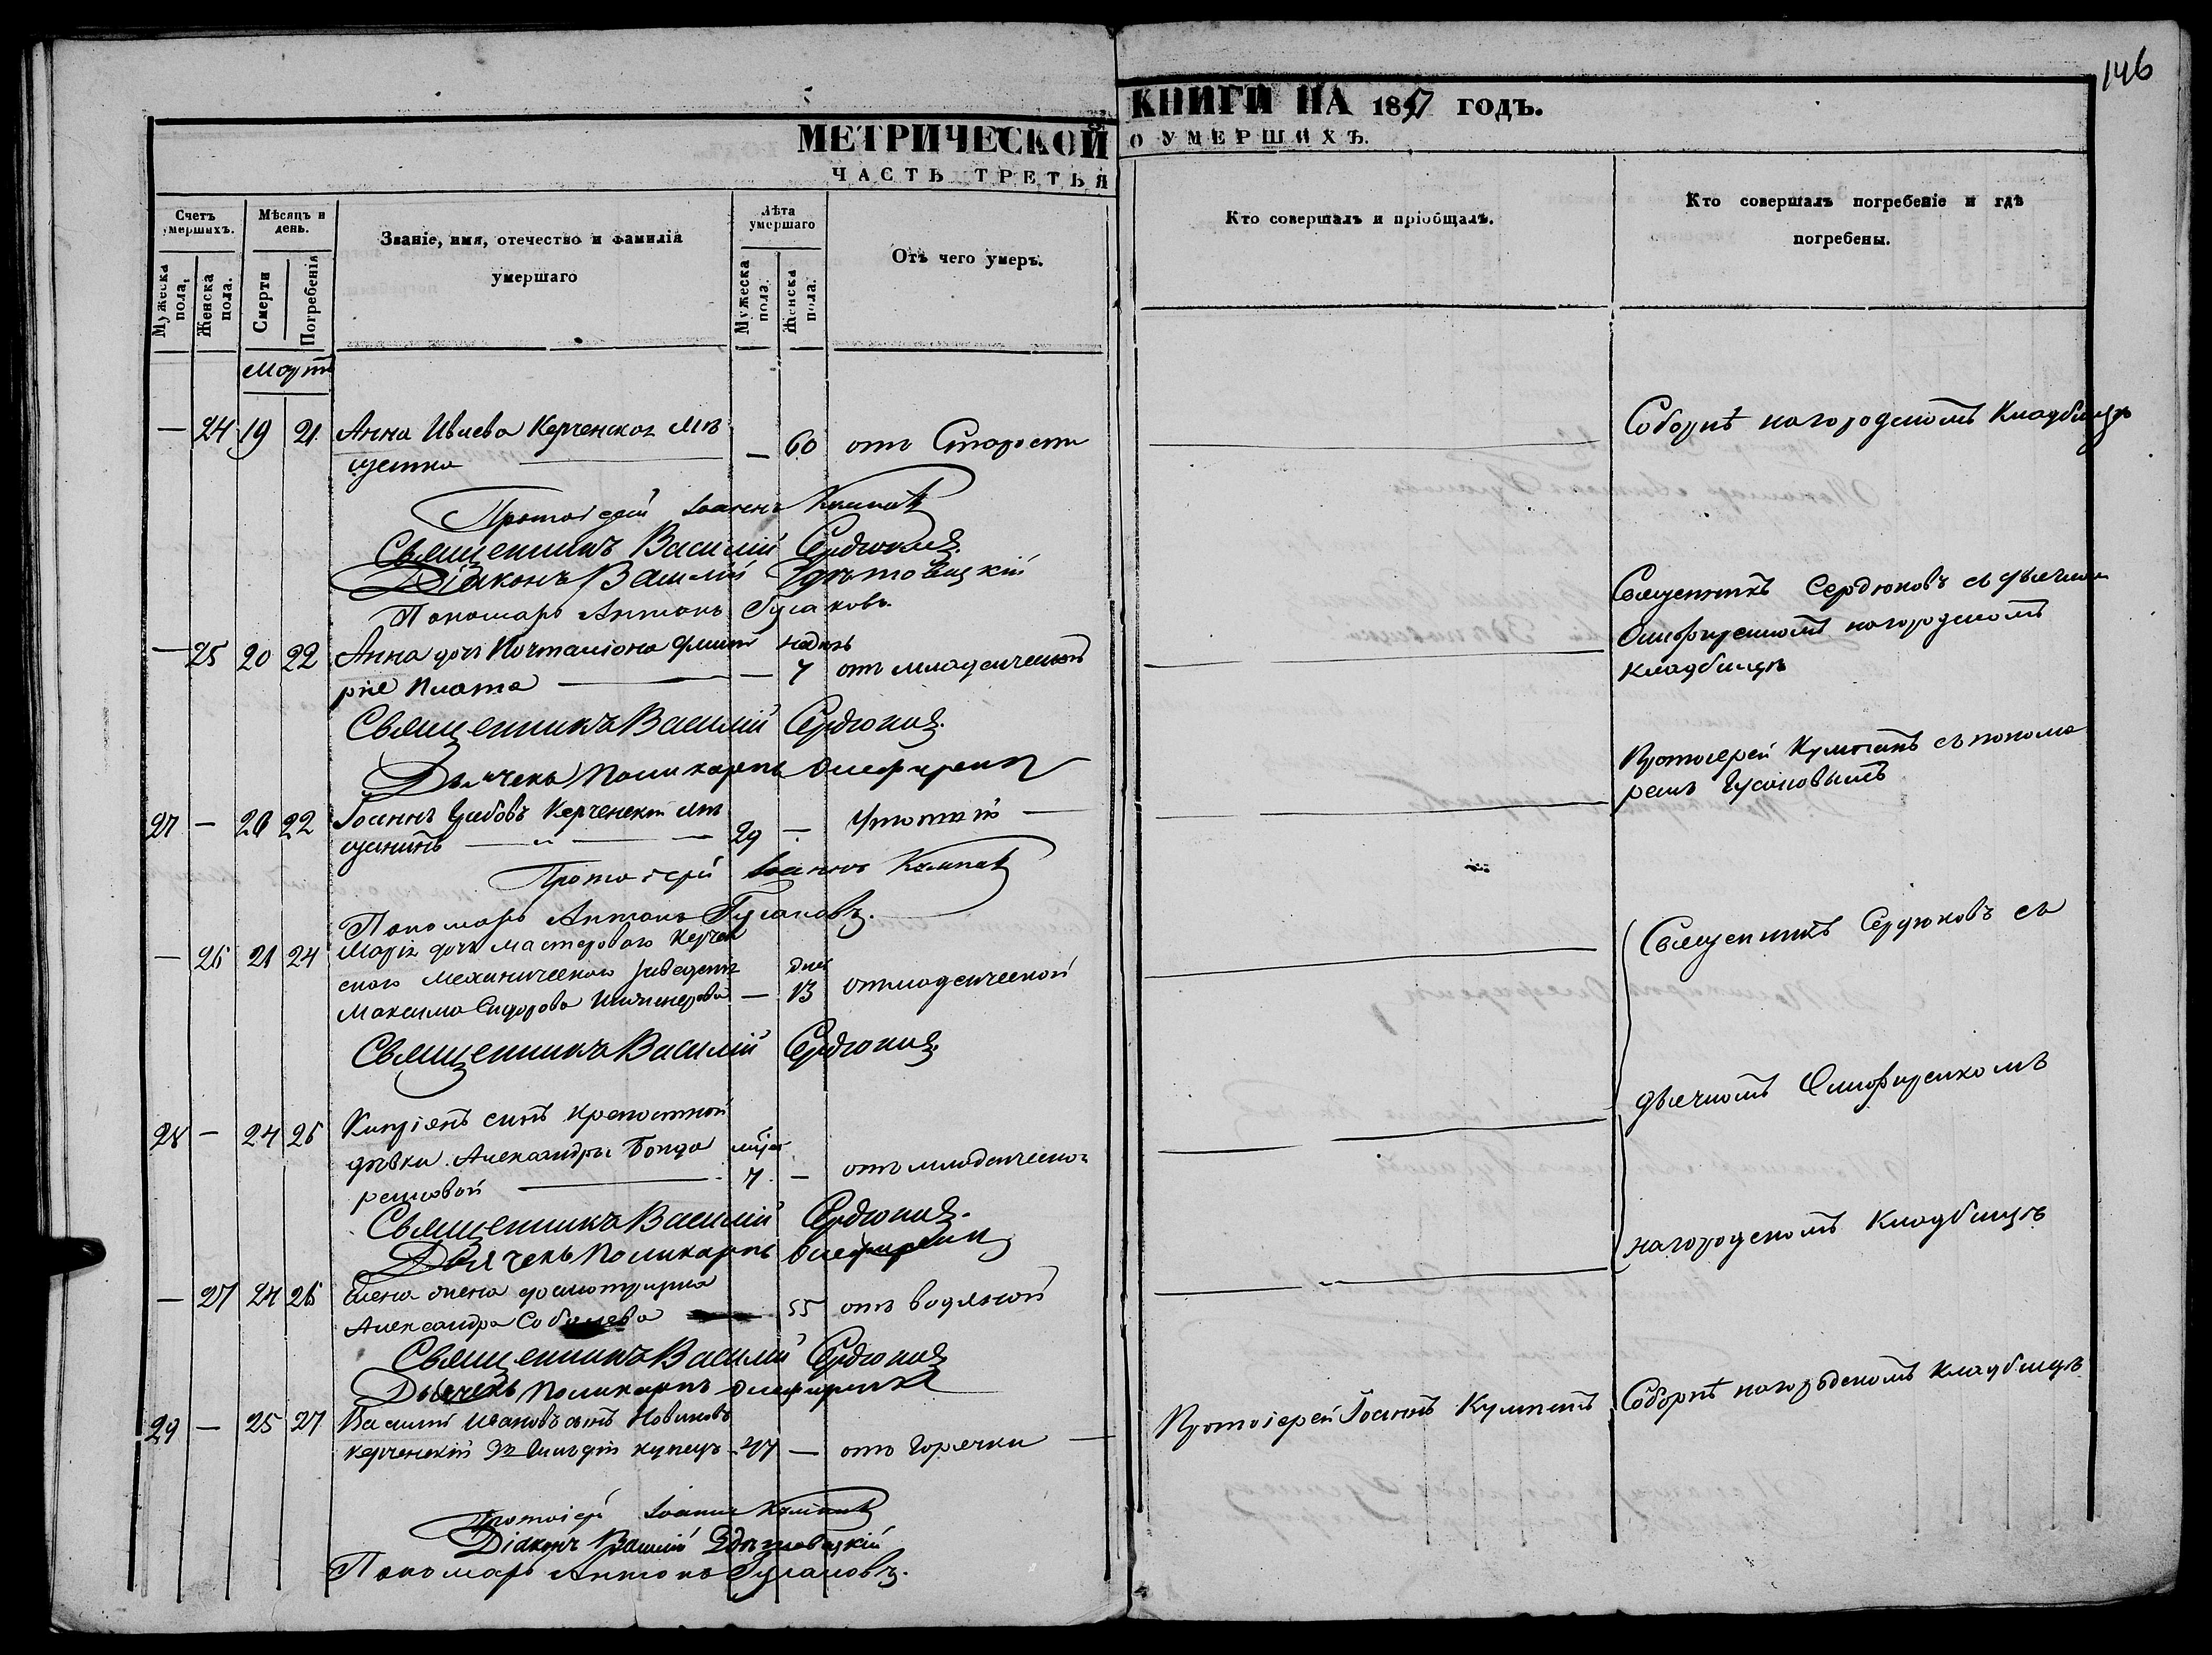 146
МЕТРИЧЕСКОЙ КНИГИ НА 1857 ГОДЪ.
ЧАСТЬ ТРЕТЬЯ О УМЕРШИХЪ.
Счетъ умершихъ.
Мужеска пола,
Женска пола.
Мѣсяцъ и день.
Смерти
Погребенія
Званіе, имя, отечество и фамилія умершаго
Лѣта умершаго
Мужеска пола.
Женска пола.
Отъ чего умеръ.
Кто совершалъ и пріобщалъ.
Кто совершалъ погребеніе и гдѣ погребены.
Мартъ
— 24 19 21 Анна Керченская мѣ
щанка — 60 отъ Старости
Соборнѣ на городскомъ Кладбищѣ
Протоіерей Іоаннъ Кумпанъ
Священникъ Василій Сердюковъ.
Діаконъ Василій
Пономарь Антонъ Гусаковъ.
— 25 20 22 Анна дочь Почталіона Дмит
рія Плота — 7 отъ младенческой
недѣль
Священникъ Сердюковъ съ дьячкомъ
Олефиренкомъ на городскомъ
кладбищѣ
Священникъ Василій Сердюковъ.
Дьячекъ Поликарпъ Олефиренко
27 — 20 22 Іоаннъ Керченскій мѣ
щанинъ 29 —
Протоіерей Кумпанъ съ понома
ремъ Гусаковымъ
Протоіерей Іоаннъ Кумпанъ
Пономарь Антонъ Гусаковъ.
— 26 21 24 Марія дочь мастероваго Керчен
скаго механическаго заведенія
Максима Сидорова — 13 отъ младенческой
дней
Священникъ Сердюковъ съ
Священникъ Василій Сердюковъ.
дьячкомъ Олефиренкомъ
28 — 24 26 сынъ крепостной
дѣвки Александры Бонда
ренковой 7 — отъ младенческой
Священникъ Василій Сердюковъ.
Дьячекъ Поликарпъ Олефиренко
на городскомъ Кладбищѣ
— 27 24 26 Елена жена
Александра Соболева — 55 отъ водяной
Священникъ Василій Сердюковъ
Дьячекъ Поликарпъ Олефиренко
29 — 25 27 Василій Ивановъ сынъ Новиковъ
Керченскій 3й Гильдіи купецъ 47 — отъ Горячки
Протоіерей Іоаннъ Кумпанъ
Соборнѣ на городскомъ кладбищѣ
Протоіерей Іоаннъ Кумпанъ
Діаконъ Василій
Пономарь Антонъ Гусаковъ.